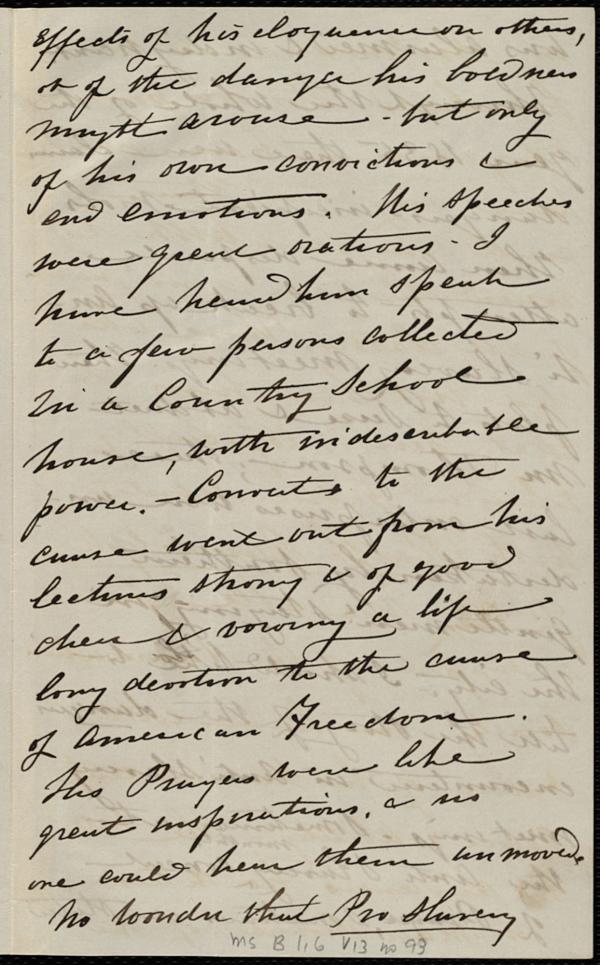 effects of his eloquence on others,
or of the danger his boldness
might arouse - but only
of his own convictions &
and emotions. His speeches
were great orations - I
have heard him speak
to a few persons collected
in a Country School
house, with indescribable
power. - Converts to the
cause went out from his
lectures strong & of good
cheer & vowing a life
long devotion to the cause
of American Freedom.
His Prayers were like
great inspirations, & no
one could hear them unmoved.
No wonder that Pro Slavery
MS B 1.6 V13 no 93